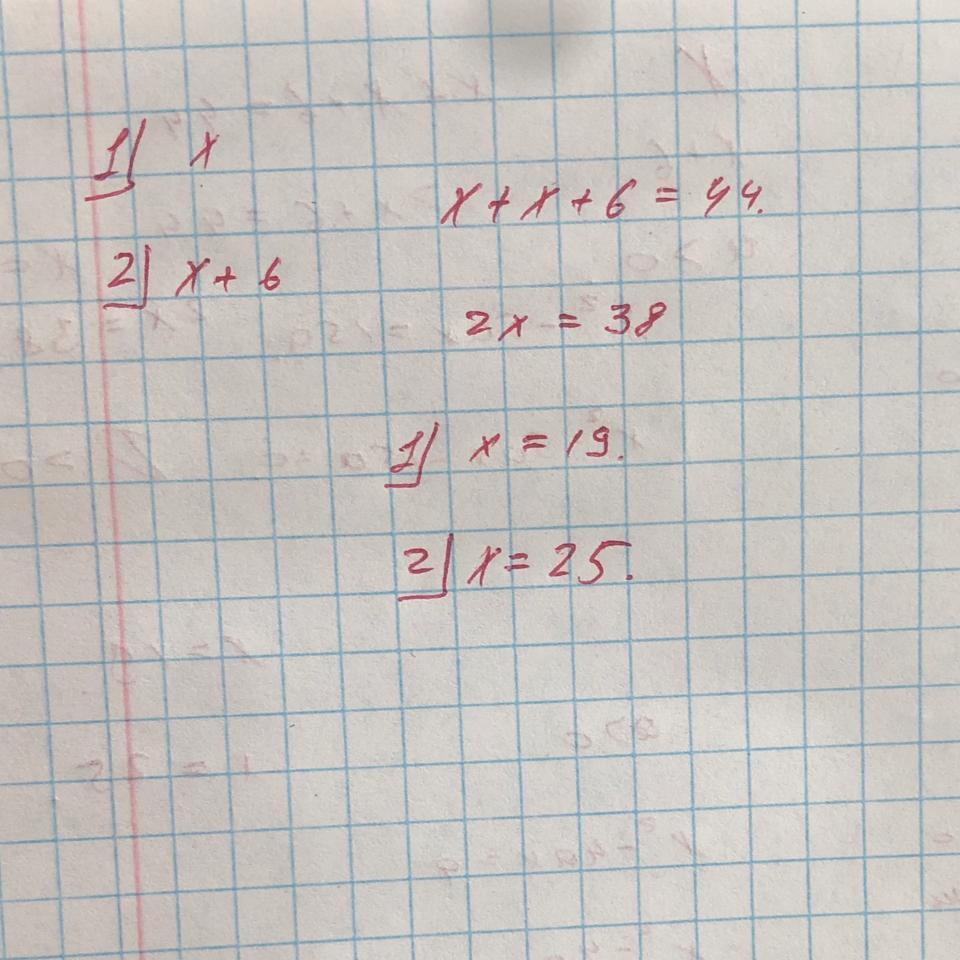 1) x
x + x + 6 = 44.
2) x + 6
2x = 38
1) x = 19.
2) x = 25.